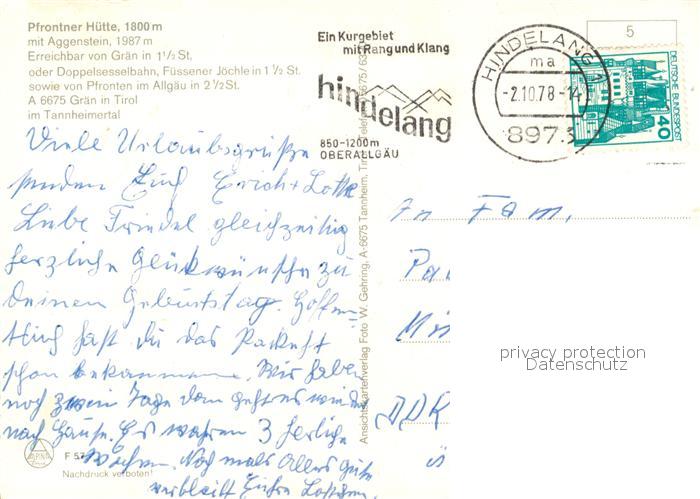 Pfrontner Hütte, 1800 m
mit Aggenstein, 1987 m
Erreichbar von Grän in 1 1/2 St.
oder Doppelsesselbahn, Füssener Jöchle in 1 1/2 St.
sowie von Pfronten im Allgäu in 2 1/2 St.
A 6675 Grän in Tirol
im Tannheimertal
Ein Kurgebiet
mit Rang und Klang
hindelang
850-1200m
OBERALLGÄU
HINDELANG 1
ma
-2.10.78-14
897
5
DEUTSCHE BUNDESPOST
40
Viele Urlaubsgrüße
senden Euch Erich + Lotte
Liebe Friedel gleichzeitig
herzliche Glückwünsche zu
Deinem Geburtstag. Hoffen
hast du das
schon bekommen. Wir haben
noch zwei Tage dann geht es wieder
nach Hause. Es waren 3 herliche
Wochen. Noch mals Alles Gute
Ansichtskartenverlag Foto W. Gehring, A-6675 Tannheim, Tirol
An Fam.
DDR
privacy protection
Datenschutz
Nachdruck verboten!